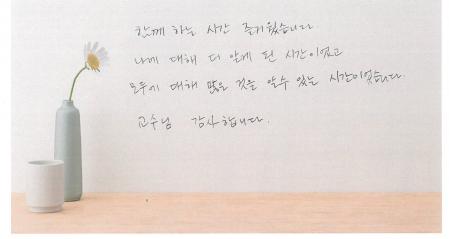 함께 하는 시간 즐거웠습니다.
나에 대해 더 알게 된 시간이였고
모두에 대해 많은 것을 알수 있는 시간이었습니다.
교수님 감사합니다.